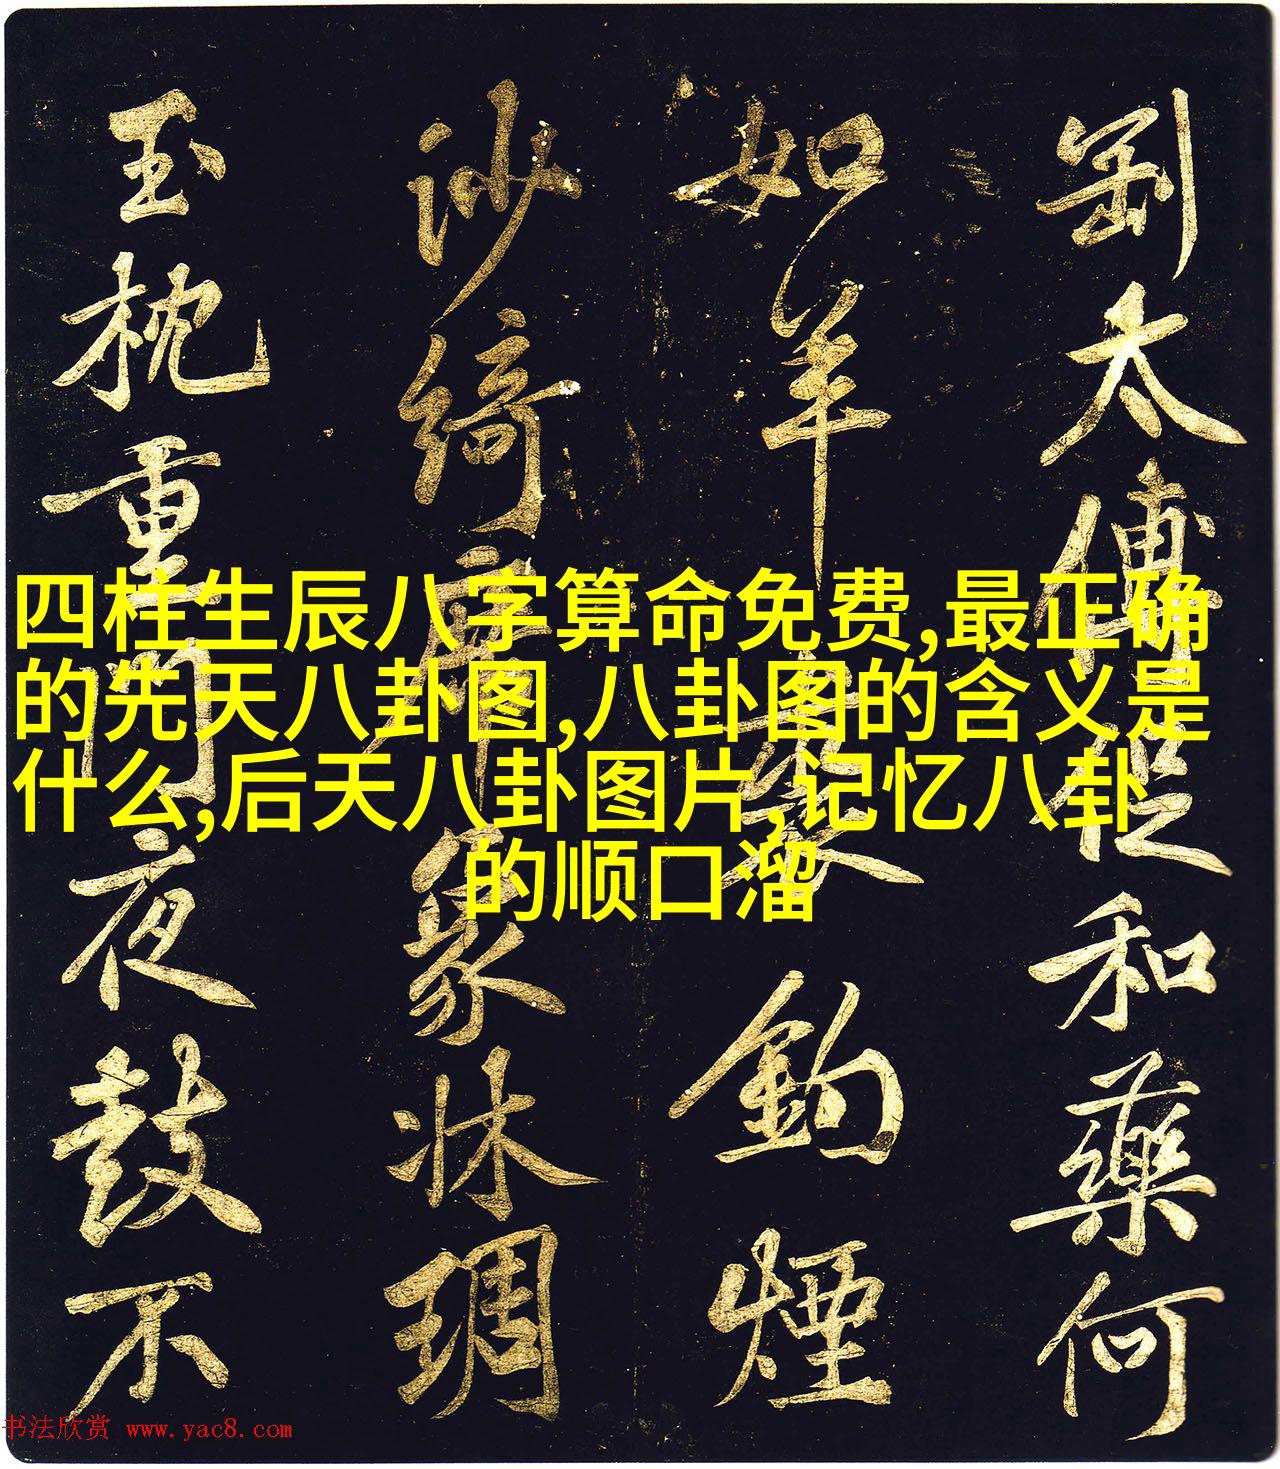 劉太傅從和藥何
如羊鈎煙
沙綺席象牀琱
玉枕重門夜鼓不
四柱生辰八字算命免费,最正确
的先天八卦图,八卦图的含义是
什么,后天八卦图片,记忆八卦
的顺口溜
书法欣赏 www.yac8.com